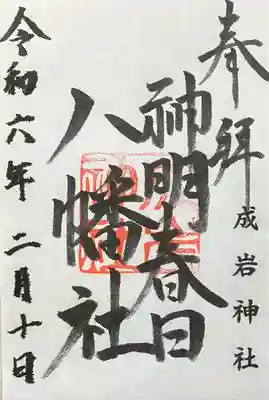 奉拝
成岩神社
神明春日
八幡社
令和六年二月十日